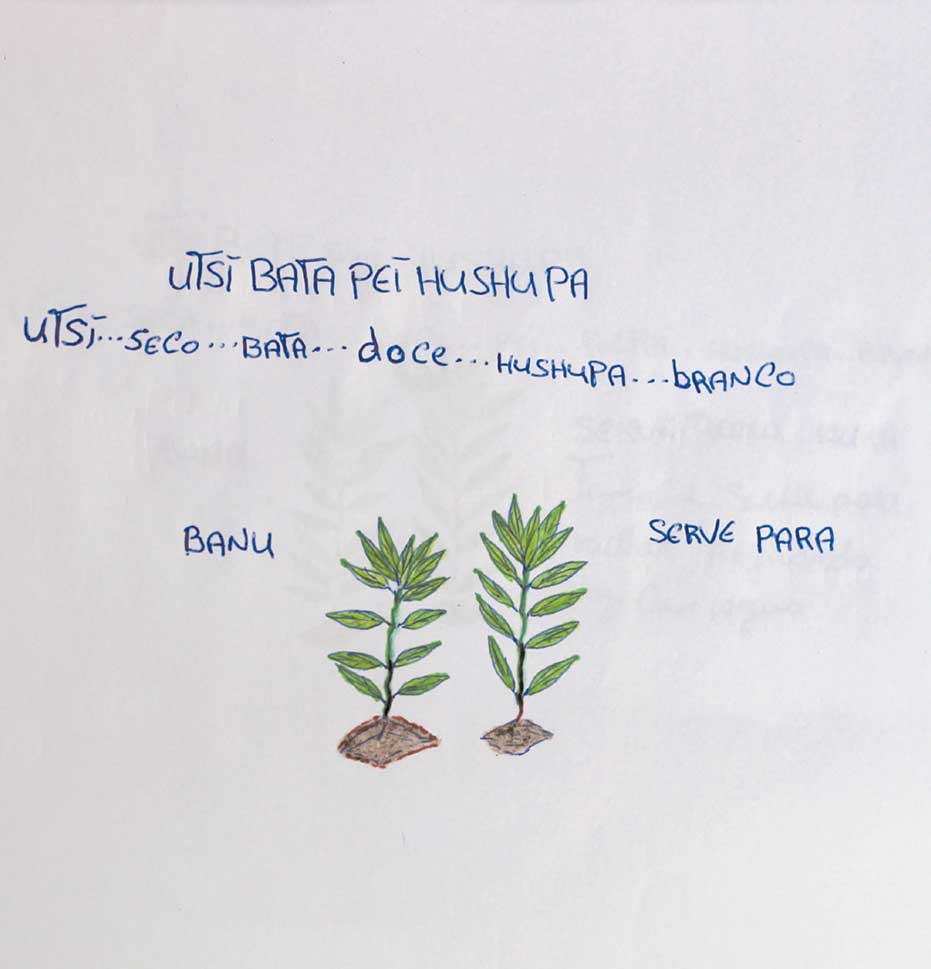 UTSĪ BATA PEĪ HUSHUPA
UTSĪ...SECO...BATA...doce...HUSHUPA...bRANCO
BANU
SERVE PARA